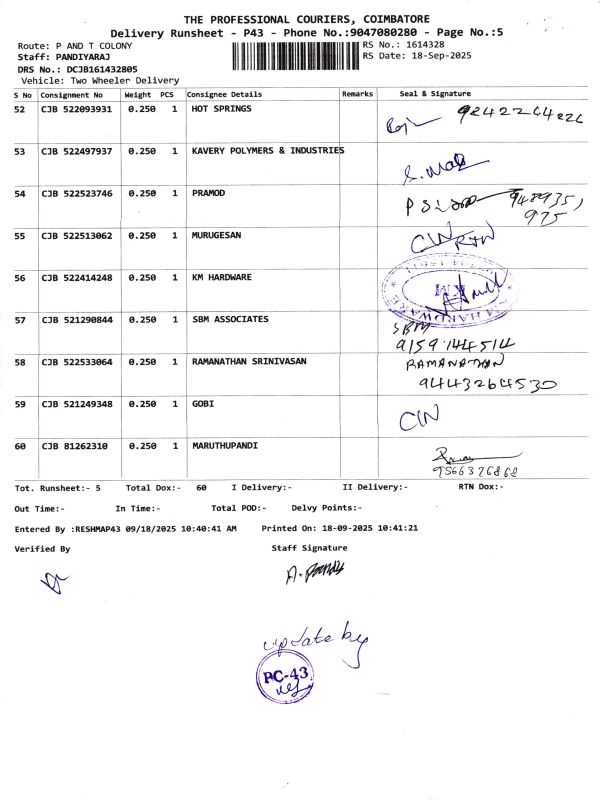 THE PROFESSIONAL COURIERS, COIMBATORE
Delivery Runsheet - P43 - Phone No.:9047080280 - Page No.:5
Route: P AND T COLONY
RS No.: 1614328
Staff: PANDIYARAJ
RS Date: 18-Sep-2025
DRS No.: DCJB161432805
Vehicle: Two Wheeler Delivery
S No Consignment No Weight PCS Consignee Details Remarks Seal & Signature
52 CJB 522093931 0.250 1 HOT SPRINGS
53 CJB 522497937 0.250 1 KAVERY POLYMERS & INDUSTRIES
54 CJB 522523746 0.250 1 PRAMOD
975
55 CJB 522513062 0.250 1 MURUGESAN
56 CJB 522414248 0.250 1 KM HARDWARE
KM HARDWARE
57 CJB 521290844 0.250 1 SBM ASSOCIATES
SBM
9159144514
58 CJB 522533064 0.250 1 RAMANATHAN SRINIVASAN RAMANATHAN
9443264530
59 CJB 521249348 0.250 1 GOBI
60 CJB 81262310 0.250 1 MARUTHUPANDI
9566326868
Tot. Runsheet:- 5 Total Dox:- 60 I Delivery:- II Delivery:- RTN Dox:-
Out Time:- In Time:- Total POD:- Delvy Points:-
Entered By :RESHMAP43 09/18/2025 10:40:41 AM Printed On: 18-09-2025 10:41:21
Verified By Staff Signature
A. Pandy
update by
PC-43